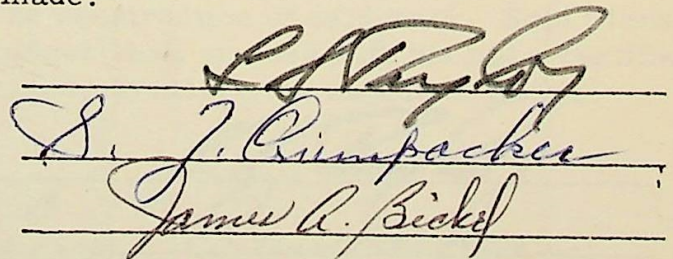 made.
L S Taylor
S. J. Crumpacker
James A. Bickel